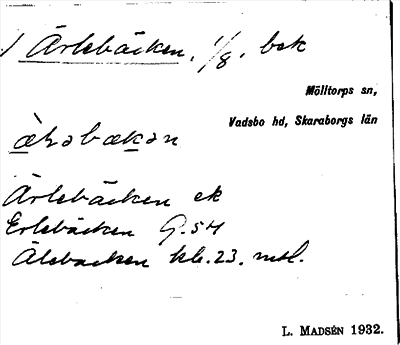 / Ärlebäcken, 1/8. bek
Mölltorps sn,
Vadsbo hd, Skaraborgs län
Ärlebäcken ek
Erlebäcken G.54
Älebacken kb.23. mtl.
L. MADSÉN 1932.